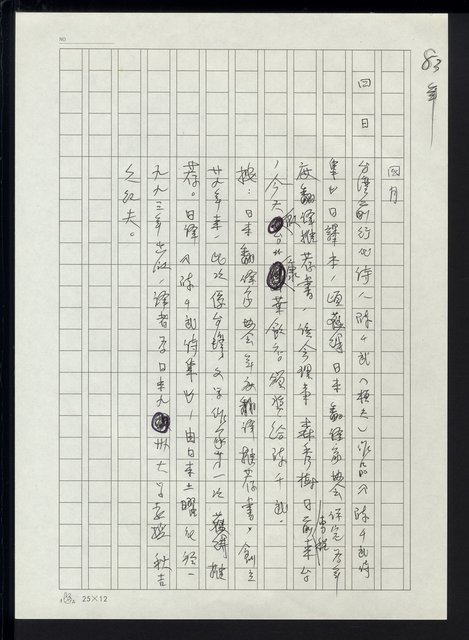 83年
四月
四日
台灣前行代詩人陳千武(桓夫)作品《陳千武詩
集》日譯本,頃獲得日本翻譯家協會保定為年
度翻譯推荐書,該會理事森秀樹日前專程來台
,今天假台北康華飯店頒獎給陳千武。
據:日本翻譯家協會年度翻譯推荐書,創立
廿九年來,此次係台灣文學作家第一次獲得推
荐。日譯《陳千武詩集》,由日本土曜於一
九九三年出版,譯者為日本九州大學教授秋吉
久紀夫。
NO
25×12